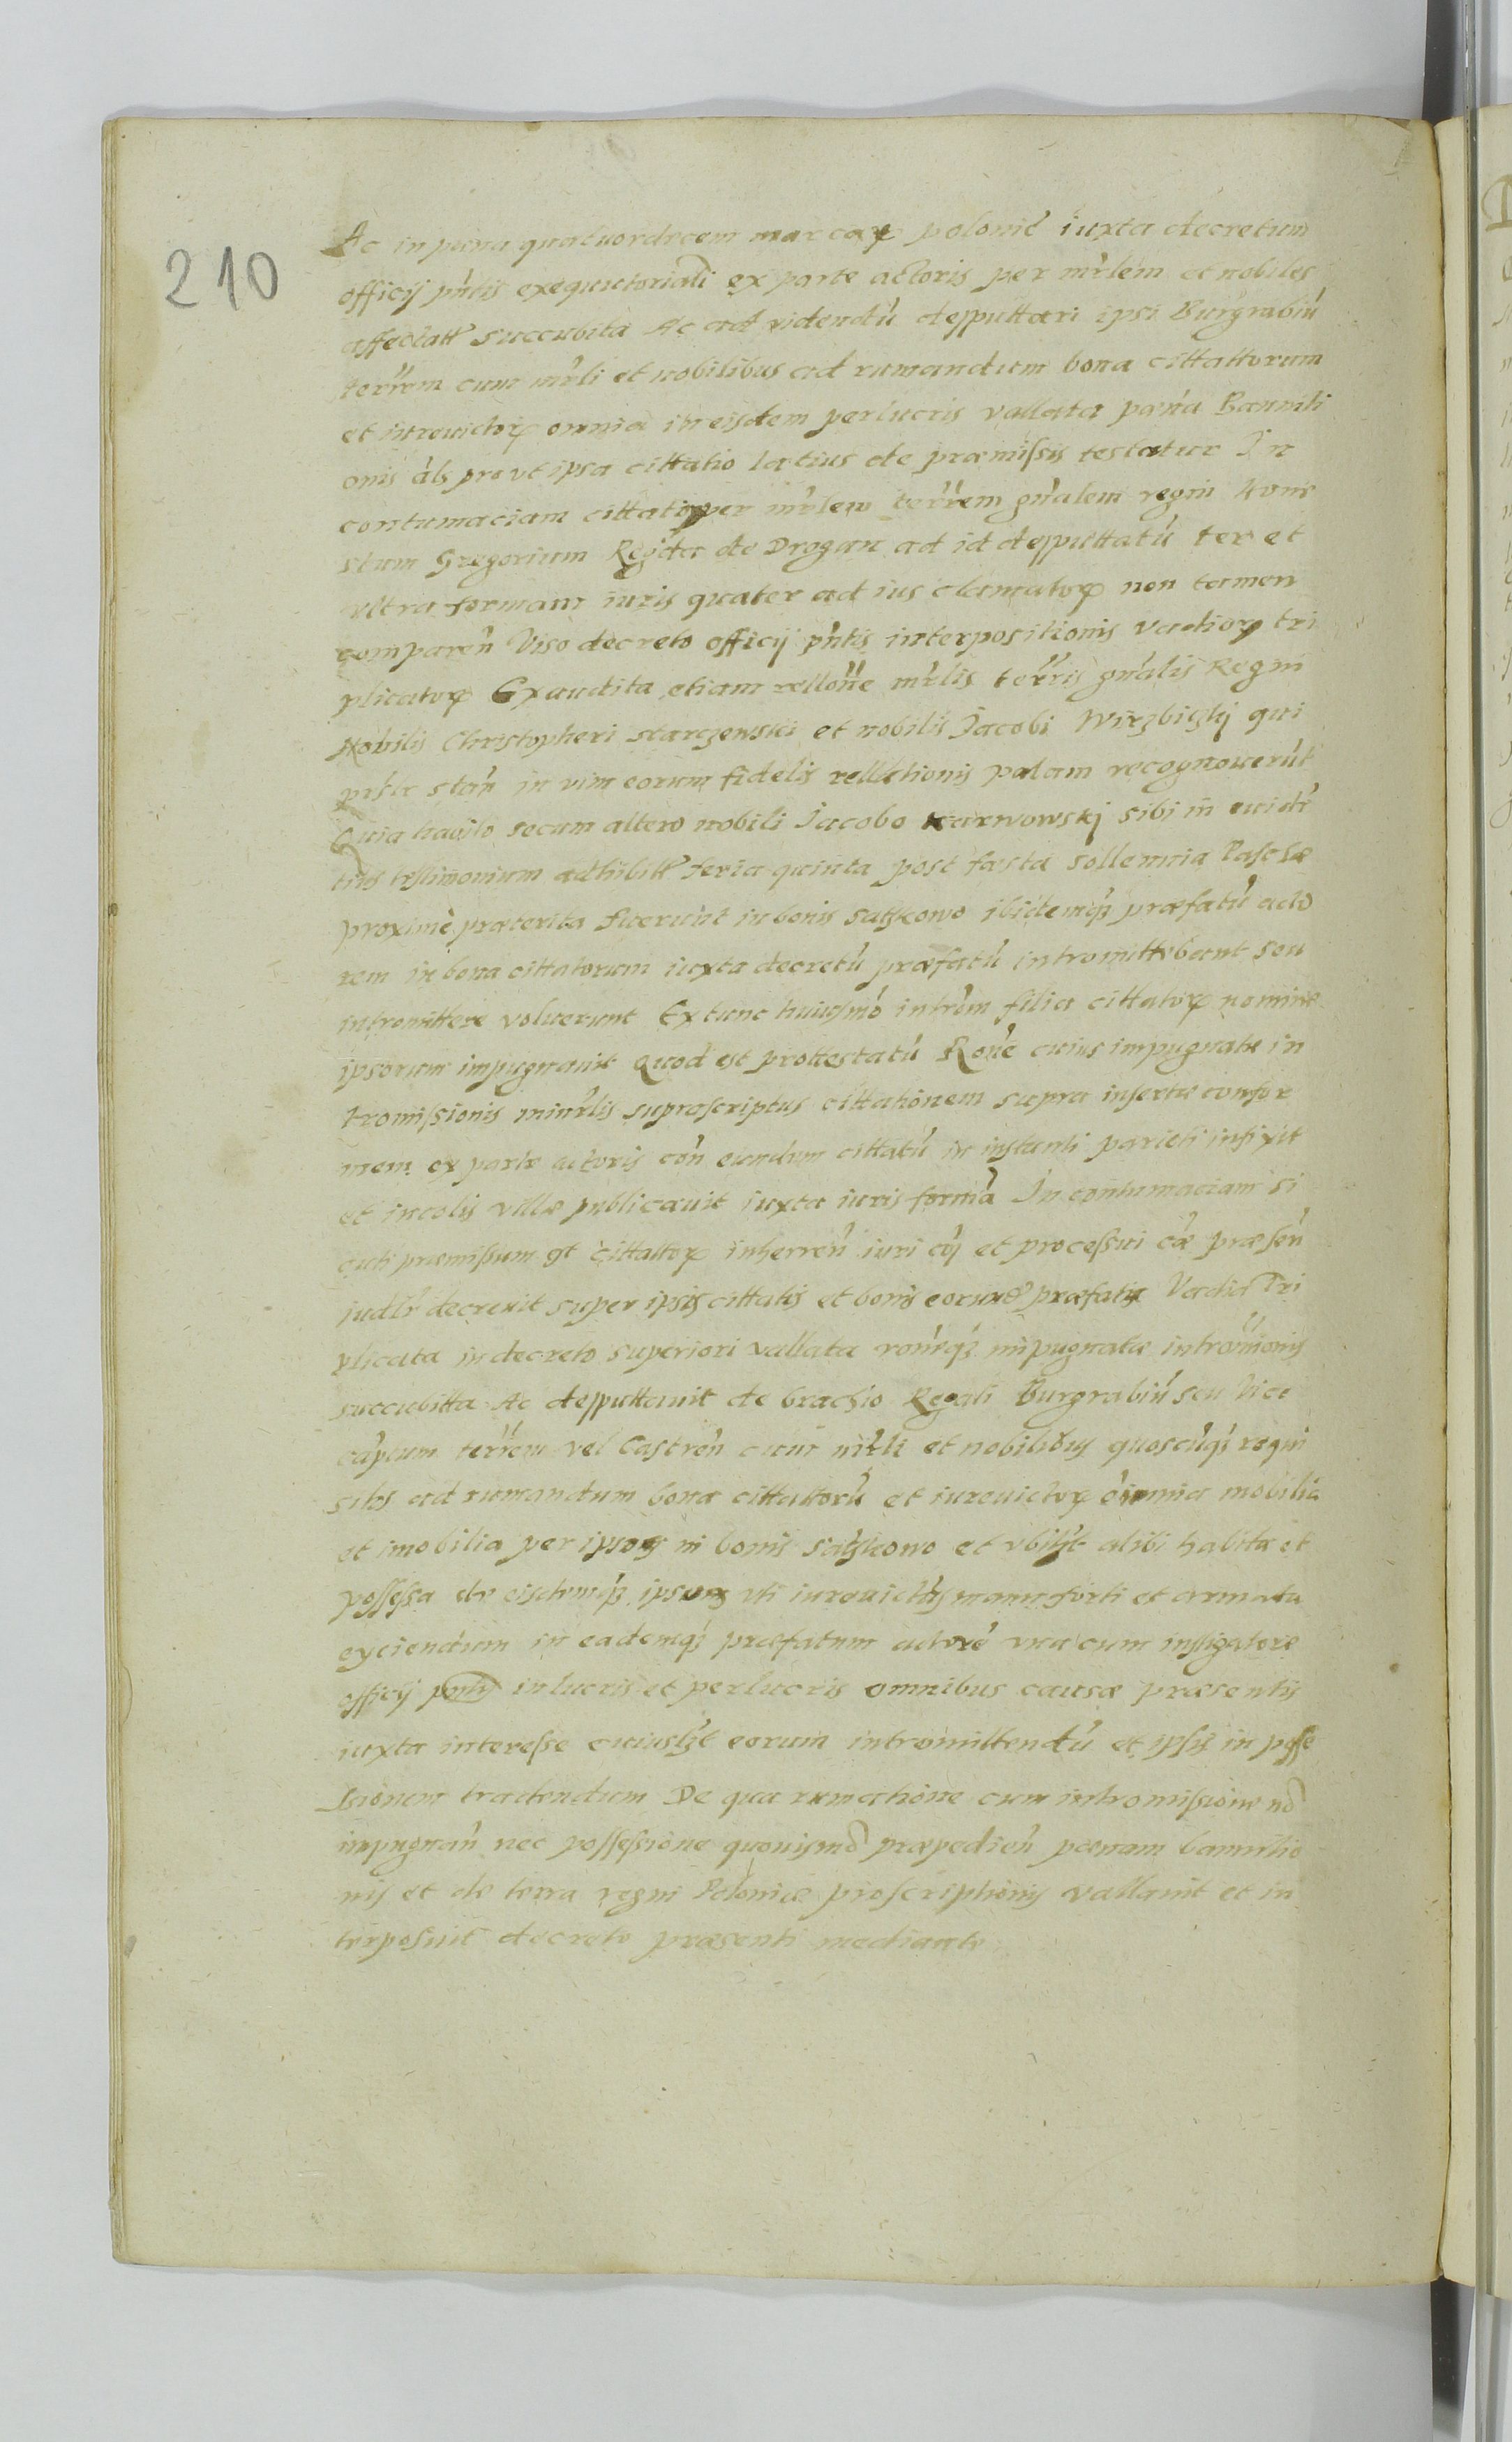 210
Ac in pœna quatuordecem marcaꝝ polonic̃ iuxta decretum
officij pñtis exequutoriali ex parte actoris per mrłem et nobiles
affectatꝭ succubita Ac ad videndũ desputtari ipsi Burgrabiũ
terrẽm cum mrłi et nobilibus ad rumandum bona cittattorum
et iureuictoꝝ omnia in eisdem perlucris vallata pœna Banniti
onis als prout ipsa cittatio latius de præmissis testatur In
contumaciam cittatoꝝ per mrłem terrẽm gñalem regni hone
stum Gregorium Rejda de Drogan ad id desputtatũ ter et
vltra formam iuris quater ad ius clamatoꝝ non tamen
comparen̄ Viso decreto officij pñtis interpositionis vadioꝝ tri
plicatoꝝ Exaudita etiam rellone mrłis terris gñalis Regni
Nobilis Christopheri starczewski et nobilis Jacobi Wirzbiczkj qui
pñta stan̄ in vim eorum fidelis rellationis palam recognouerũt
Quia habito secum altero nobili Jacobo karwowskj sibi in euidẽ
tius testimonium adhibitꝭ feria quinta post fæsta sollemnia Paschæ
proximè præterita fuerunt in bonis satzkowo ibidemqꝫ præfatũ acto
rem in bona cittatorum iuxta decretũ præfatũ intromittebant seu
intromittere voluerunt Extunc huiusmõ introm̃ filia cittatoꝝ nomine
ipsorum impugnauit Quod est prottestatũ Rõne cuius impugnatæ in
tromissionis mimrlis suprascriptus cittationem supra insertæ confor
mem ex parte actoris cõn eiundum cittatũ in instanti parieti infixit
et incolis villæ publicauit iuxta iuris formã In contumaciam si
cuti præmissum est cittattoꝝ inherren̄ iuri cõi et processui cæ præsen̄
iudm̃ decreuit super ipsis cittatis et bonis eorum præfatis Vadia Tri
plicata in decreto superiori vallata rõneqꝫ impugnatæ intromionis
succubitta Ac desputtauit de brachio Regali Burgrabiũ seu Vice
cap̃eum terrẽm vel Castren̄ cum mrłi et nobilibus quoscũqꝫ requi
sitos ad rumandum bona cittattorũ et iureuictoꝝ omnia mobilia
et imobilia per ipsos in bonis satzkowo et vbilꝫt alibi habita et
possessa de eisdemqꝫ ipsos vti iureuictos manu forti et armata
eyciendum in eademqꝫ præfatum actorẽ vna cum instigatore
officij pñtis in lucris et perlucris omnibus causæ præsentis
iuxta interesse cuiuslꝫt eorum intromittendũ et ipsis in posse
ssionem tradendum De qua rumatione cum intromissione nõ
impugnan̄ nec possessione quouismõ præpedien̄ pœnam bannitio
nis et de terra regni Poloniæ proscriptionis vallauit et in
terposuit decreto præsenti mediante